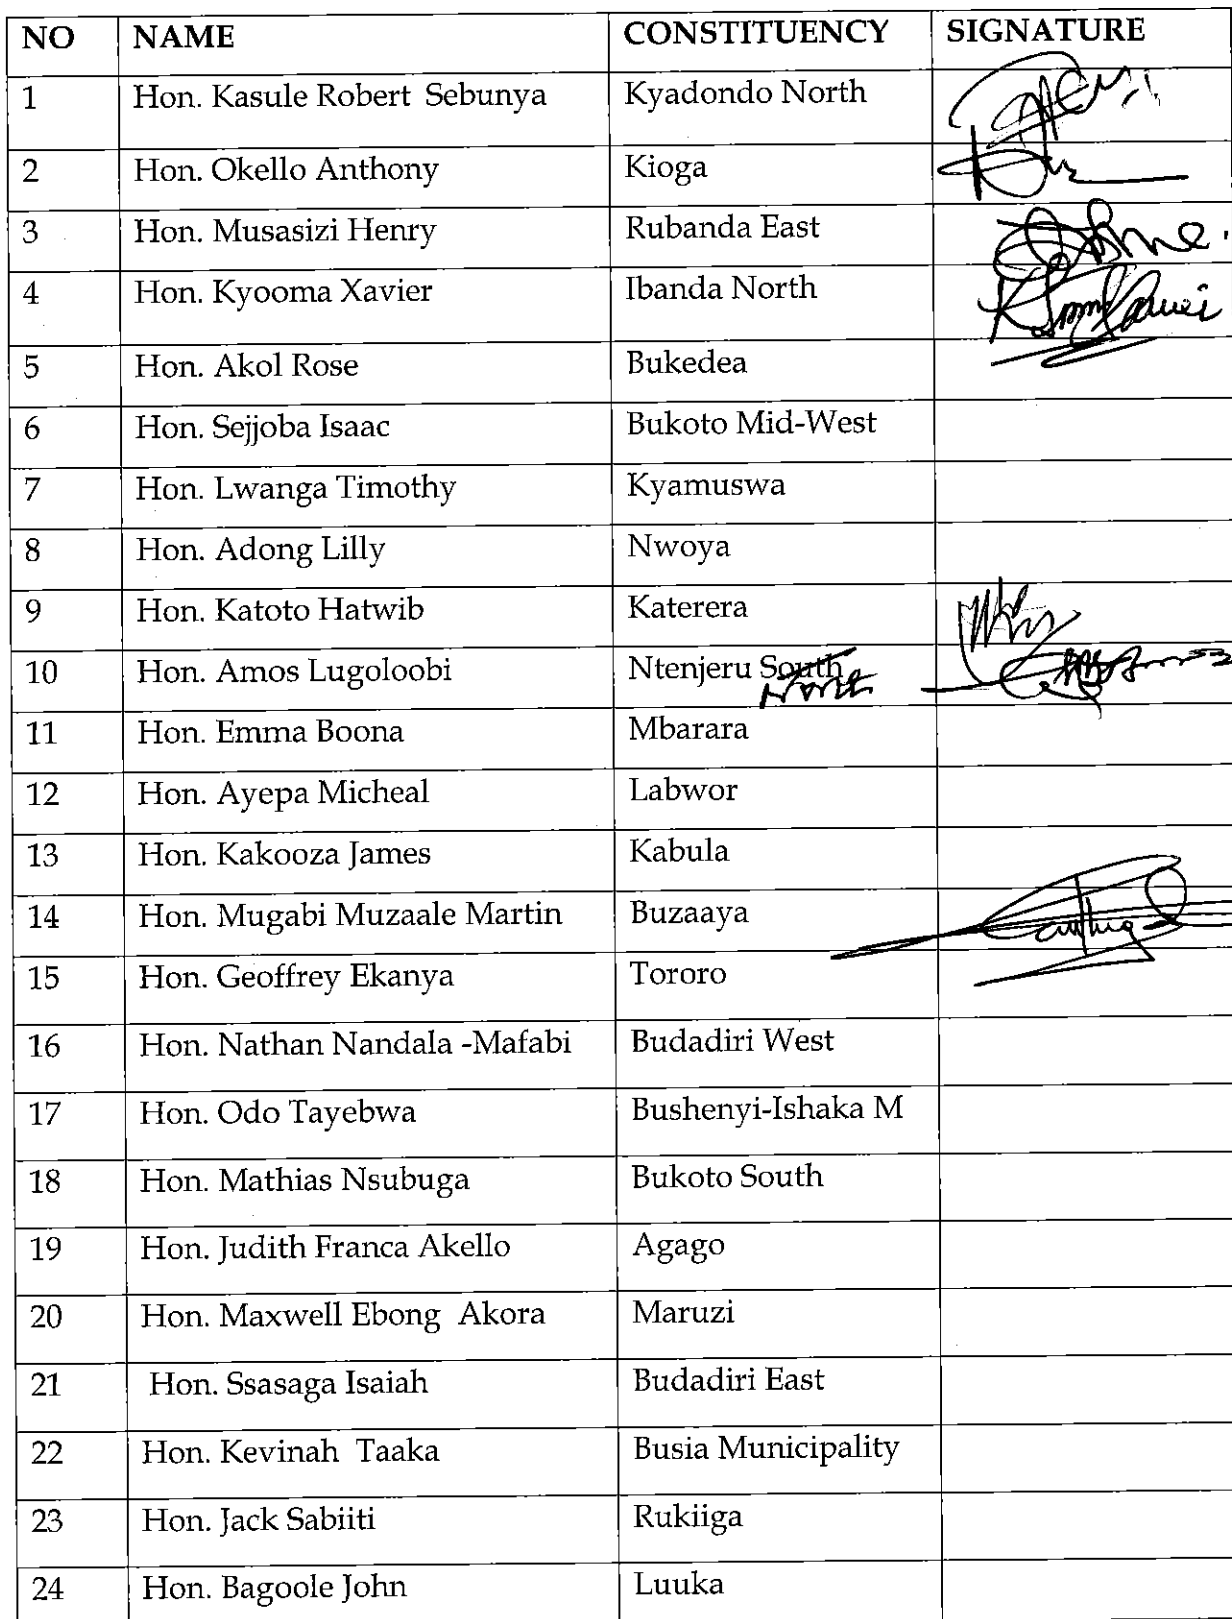 NO NAME CONSTITUENCY SIGNATURE
1 Hon. Kasule Robert Sebunya Kyadondo North
2 Hon. Okello Anthony Kioga
3 Hon. Musasizi Henry Rubanda East
4 Hon. Kyooma Xavier Ibanda North
5 Hon. Akol Rose Bukedea
6 Hon. Sejjoba Isaac Bukoto Mid-West
7 Hon. Lwanga Timothy Kyamuswa
8 Hon. Adong Lilly Nwoya
9 Hon. Katoto Hatwib Katerera
10 Hon. Amos Lugoloobi Ntenjeru South
North
11 Hon. Emma Boona Mbarara
12 Hon. Ayepa Micheal Labwor
13 Hon. Kakooza James Kabula
14 Hon. Mugabi Muzaale Martin Buzaaya
15 Hon. Geoffrey Ekanya Tororo
16 Hon. Nathan Nandala -Mafabi Budadiri West
17 Hon. Odo Tayebwa Bushenyi-Ishaka M
18 Hon. Mathias Nsubuga Bukoto South
19 Hon. Judith Franca Akello Agago
20 Hon. Maxwell Ebong Akora Maruzi
21 Hon. Ssasaga Isaiah Budadiri East
22 Hon. Kevinah Taaka Busia Municipality
23 Hon. Jack Sabiiti Rukiiga
24 Hon. Bagoole John Luuka